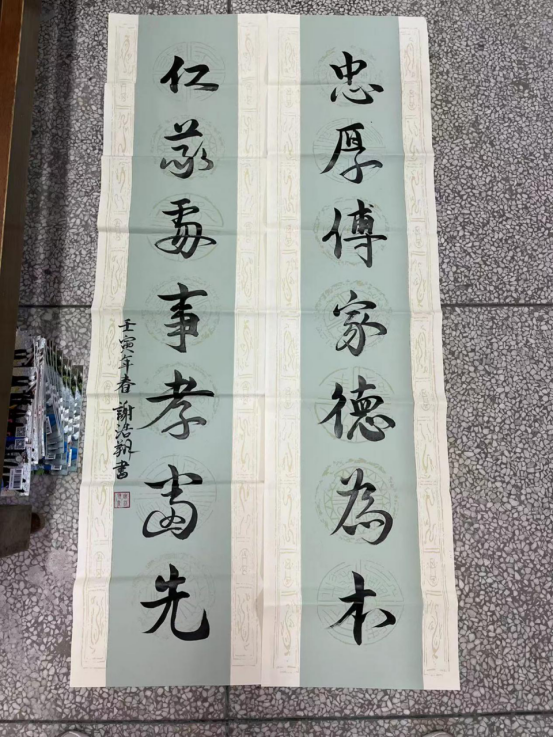 忠厚傳家德為本
仁義處事孝當先
壬寅年春 謝浩 書